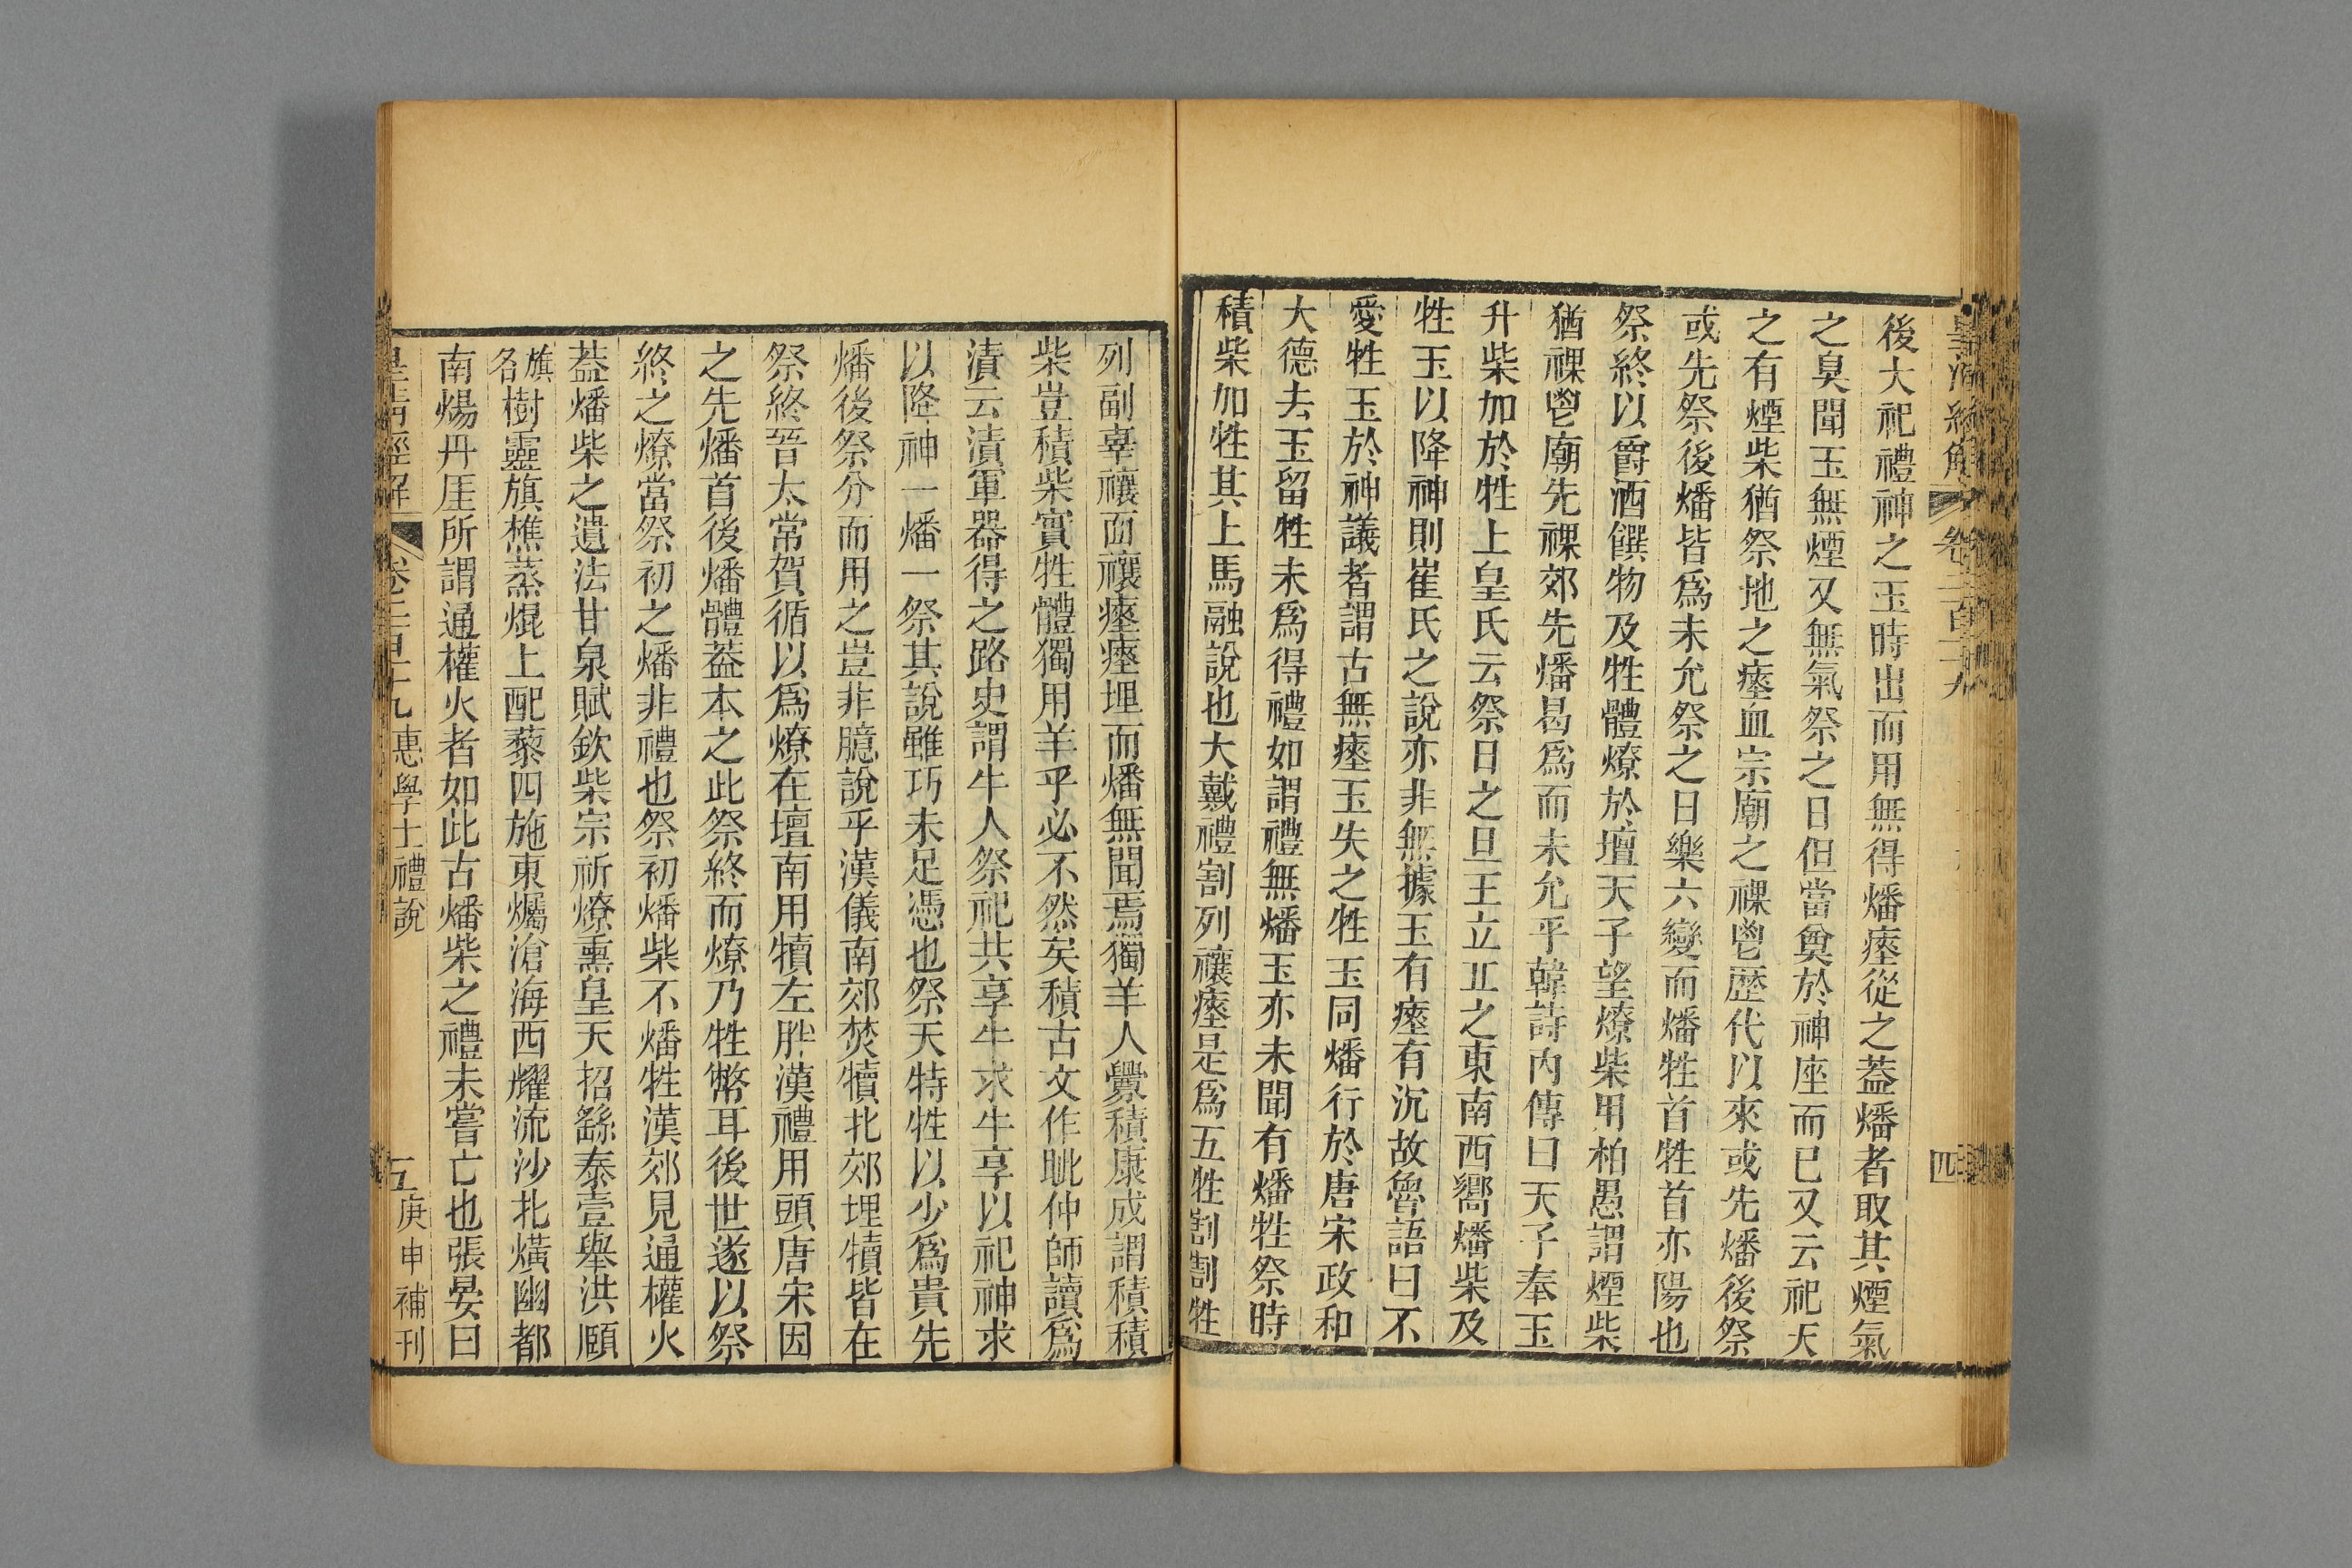 皇清經解 卷二百十九 四
後大祀禮神之玉時出而用無得燔瘞從之葢燔者取其煙氣
之臭聞玉無煙又無氣祭之日但當奠於神座而已又云祀天
之有煙柴猶祭地之瘞血宗廟之祼鬯歷代以來或先燔後祭
或先祭後燔皆爲未允祭之日樂六變而燔牲首牲首亦陽也
祭終以爵酒饌物及牲體燎於壇天子望燎柴用柏愚謂煙柴
猶祼鬯廟先祼郊先燔曷爲而未允乎韓詩內傳曰天子奉玉
升柴加於牲上皇氏云祭日之旦王立丘之東南西嚮燔柴及
牲玉以降神則崔氏之說亦非無據玉有瘞有沉故魯語曰不
愛牲玉於神議者謂古無瘞玉失之牲玉同燔行於唐宋政和
大德去玉留牲未爲得禮如謂禮無燔玉亦未聞有燔牲祭時
積柴加牲其上馬融說也大戴禮割列禳瘞是爲五牲割割牲
列副辜禳面禳瘞瘞埋而燔無聞焉獨羊人釁積康成謂積積
柴豈積柴實牲體獨用羊乎必不然矣積古文作眦仲師讀爲
漬云漬軍器得之路史謂牛人祭祀共享牛求牛享以祀神求
以降神一燔一祭其說雖巧未足憑也祭天特牲以少爲貴先
燔後祭分而用之豈非臆說乎漢儀南郊焚犢北郊埋犢皆在
祭終晉太常賀循以爲燎在壇南用犢左胖漢禮用頭唐宋因
之先燔首後燔體葢本之此祭終而燎乃牲幣耳後世遂以祭
終之燎當祭初之燔非禮也祭初燔柴不燔牲漢郊見通權火
葢燔柴之遺法甘泉賦欽柴宗祈燎熏皇天招繇泰壹舉洪頤
旗名樹靈旗樵蒸焜上配藜四施東爥滄海西耀流沙北熿幽都
南煬丹厓所謂通權火者如此古燔柴之禮未嘗亡也張晏曰
皇淸經解 卷二百十九 惠學士禮說 五 庚申補刊